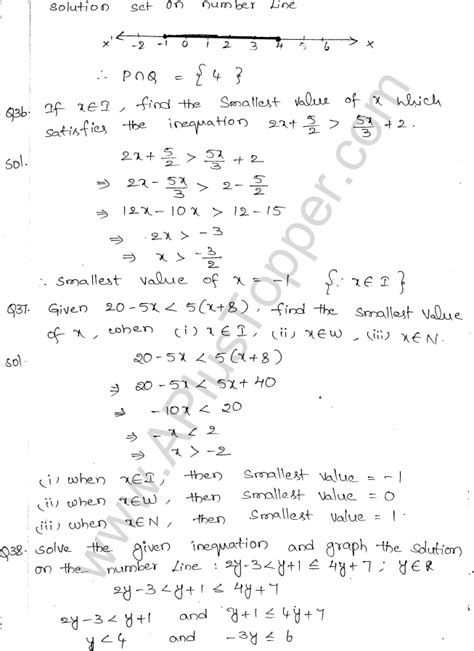 Solution set on number line
x' -2 -1 0 1 2 3 4 5 6 x
∴ P∩Q = {4}
Q36. If x∈I, find the smallest value of x which
satisfies the inequation 2x + 5/2 > 5x/3 + 2.
Sol. 2x + 5/2 > 5x/3 + 2
⇒ 2x - 5x/3 > 2 - 5/2
⇒ 12x - 10x > 12 - 15
⇒ 2x > -3
⇒ x > -3/2
∴ smallest value of x = -1 {∵ x∈I}
Q37. Given 20-5x < 5(x+8), find the smallest value
of x, when (i) x∈I, (ii) x∈W, (iii) x∈N.
Sol. 20-5x < 5(x+8)
⇒ 20-5x < 5x+40
⇒ -10x < 20
⇒ -x < 2
⇒ x > -2
(i) when x∈I, then smallest value = -1
(ii) when x∈W, then smallest value = 0
(iii) when x∈N, then smallest value = 1.
Q38. Solve the given inequation and graph the solution
on the number line: 2y-3 < y+1 ≤ 4y+7; y∈R
2y-3 < y+1 ≤ 4y+7
2y-3 < y+1 and y+1 ≤ 4y+7
y < 4 and -3y ≤ 6
www.APlusTopper.com